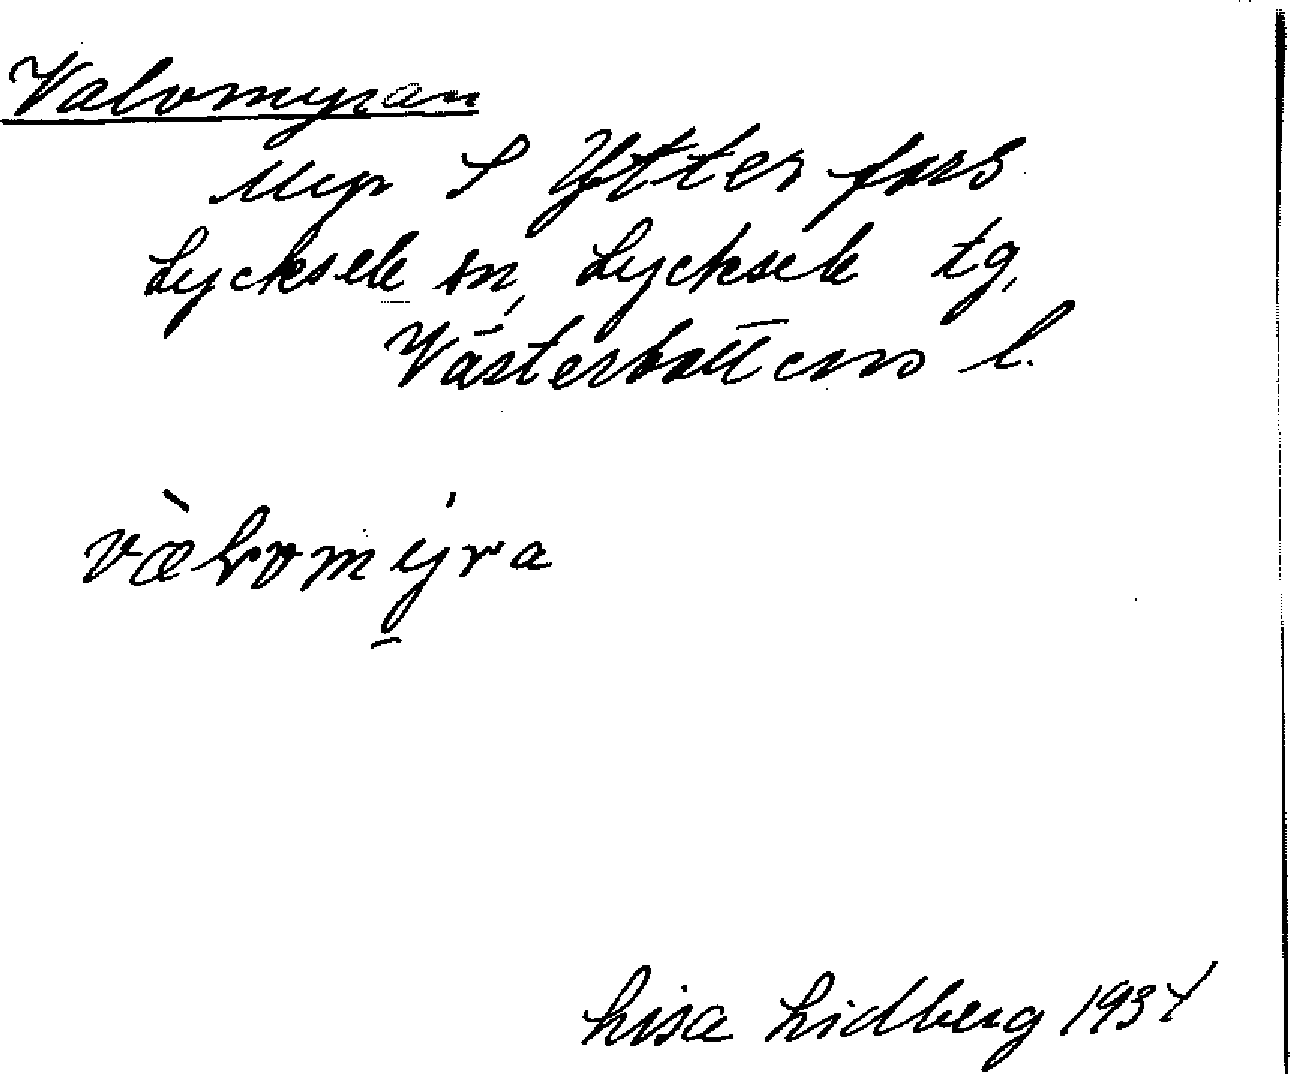 Valvomyran
myr S Ytterfors
Lycksele sn, Lycksele tg,
Västerbottens l.
væ̀lvomýra
Lisa Lidberg 1934